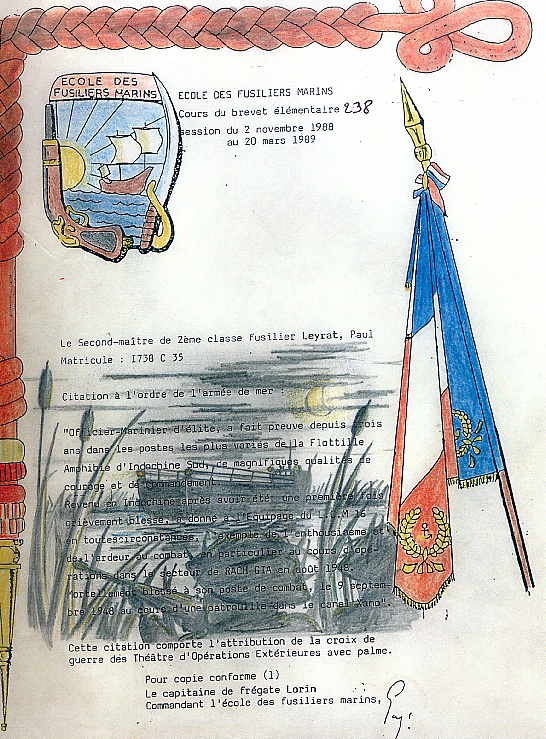 ECOLE DES
FUSILIERS MARINS
ECOLE DES FUSILIERS MARINS
Cours du brevet élémentaire 238
session du 2 novembre 1988
au 20 mars 1989
Le Second-maître de 2ème classe Fusilier Leyrat, Paul
Matricule : 1738 C 35
Citation à l'ordre de l'armée de mer :
"Officier-Marinier d'élite, a fait preuve depuis trois
ans dans les postes les plus variés de la Flottille
Amphibie d'Indochine Sud, de magnifiques qualités de
courage et de commandement.
Revenu en Indochine après avoir été, une première fois
grièvement blessé, a donné à l'Equipage du L.C.M 16
en toutes circonstances, l'exemple de l'enthousiasme et
de l'ardeur au combat, en particulier au cours d'opé-
rations dans le secteur de RACH GIA en août 1948.
Mortellement blessé à son poste de combat, le 9 septem-
bre 1948 au cours d'une patrouille dans le canal Xano".
Cette citation comporte l'attribution de la croix de
guerre des Théâtre d'Opérations Extérieures avec palme.
Pour copie conforme (1)
Le capitaine de frégate Lorin
Commandant l'école des fusiliers marins,